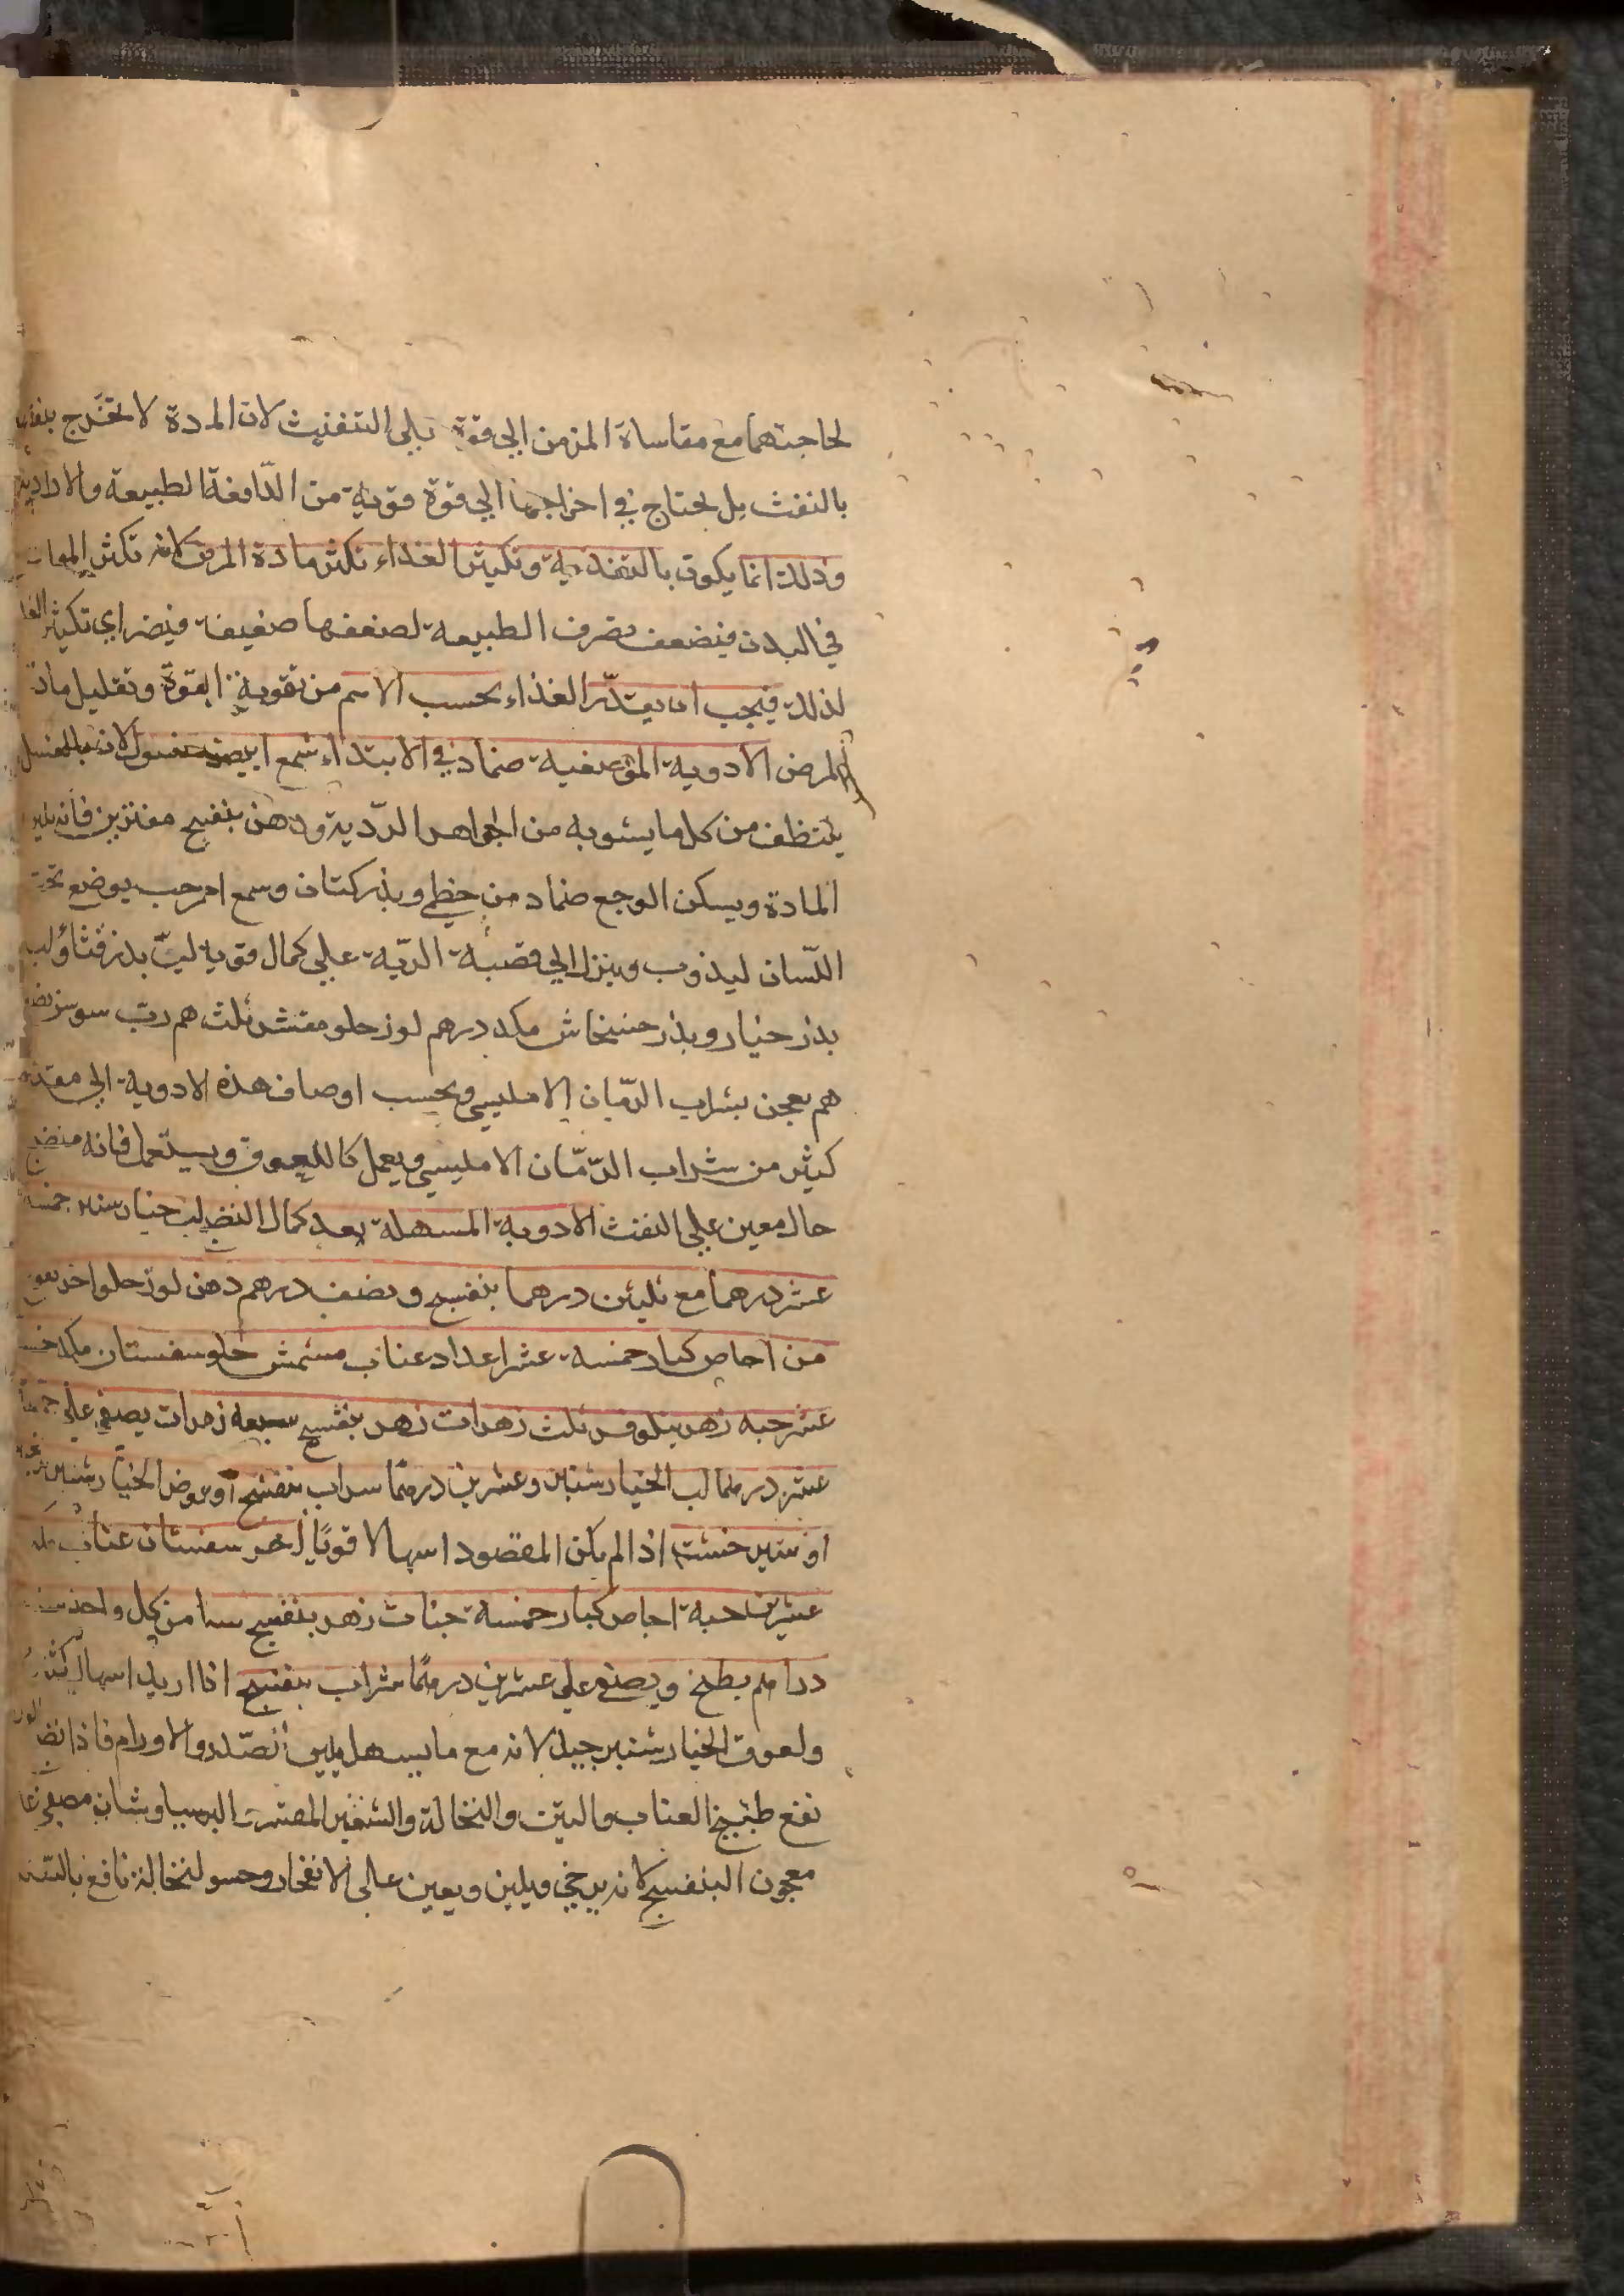 لحاجتهما مع مقاساة المزمن الي قوة تلي التنفيث لان المدة لا تخرج بنفس
بالنفث بل يحتاج في اخراجها الي قوة قوية من الدّافعة الطبيعة والارادية
وذلك انما يكون بالتغذية وتكثير الغذاء تكثر مادة المرض لانه تكثر
في البدن فيضعف تصرف الطبيعة لضعفها ضعيفة فيضر اي تكثير الغذا
لذلك فيجب ان يقدّر الغذاء بحسب الاهم من تقوية القوة وتقليل مادة
المرض الادوية الموضعية ضماد في الابتداء شمع ابيض مغسول لانه بالغسل
يتنظف من كل ما يشوبه من الجواهر الردّية ودهن بنفسج مفترين فانه يلين
المادة ويسكن الوجع ضماد من خطمي وبذر كتان وسمع احمر حب يوضع تحت
اللّسان ليذوب وينزل الي قصبة الريّة علي كمال قوية لبّ بذر قثا ولب
بذر خيار وبذر خشخاش مكد درهم لوز حلو مقشر ثلث هم ربّ سوس نصف
هم يعجن بشراب الرمّان الامليسي وبحسب اوصاف هذه الادوية الي مقدار
كثير من شراب الرّمّان الامليسي ويعمل كاللعوق ويستعمل فانه منضج
حال معين علي النفث الادوية المسهلة بعد كمال النضج لب خيار شنبر خمسة
عشر درهما مع ثلثين درهما بنفسج ونصف درهم دهن لوز حلو اخر نقوع
من اجاص كبار خمسة عشر اعداد عناب مشمش حلو سفستان مكد خمسة
عشر حبه زهر نيلوفر ثلث زهرات زهر بنفسج سبعه زهرات يصفي علي خمسة
عشر درهما لب الخيار شنبر وعشرين درهمًا شراب بنفسج او عوض الخيار شنبر
او شير خشت اذا لم يكن المقصود اسهالا قويًا اخر سفستان عناب مكد
عشرين حبة اجاص كبار خمسة حبات زهر بنفسج سنا من كل واحد ستة
دراهم يطبخ ويصفي علي عشرين درهمًا شراب بنفسج اذا اريد اسهال كثير
ولعوق الخيار شنبر جيد لانه مع ما يسهل يلين الصّدر والاورام فاذا نضج الورم
نفع طبيخ العناب والتين والنخالة والشعير المقشر البرسياوشان مصفي علي
معجون البنفسج لانه يرخي ويلين ويعين علي الانفجار وحسو النخالة نافع بالتنقية